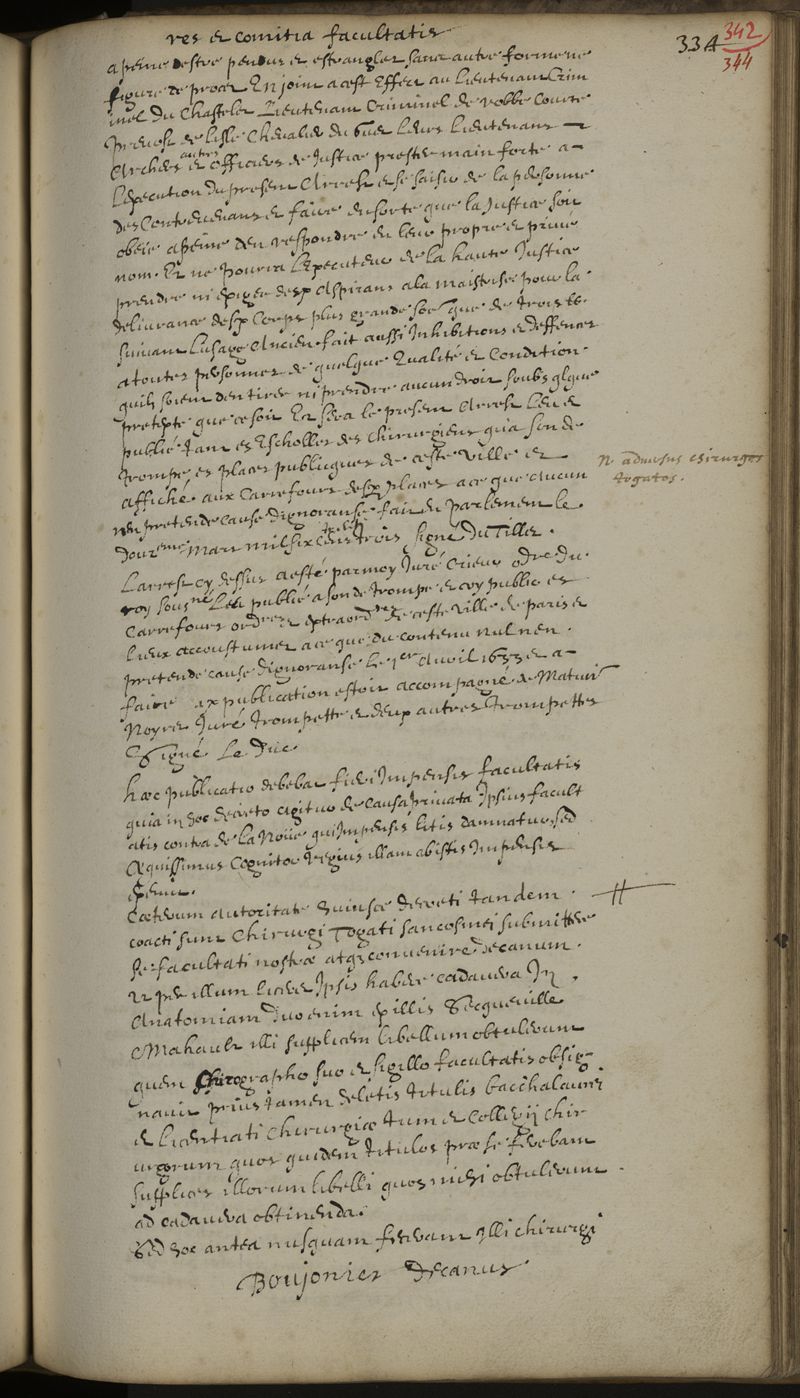 res et comitia facultatis
334 342
344
a peine destre pendus et estranglez sans autre forme ne
figure de proces Enjoint a cest Effect au Lieutenant Crim
inel du Chastelet Lieutenant Criminel de robbe Courte
Prevost de lisle Chevalier du Guet Leurs Lieutenans
Archers et autres officiers de Justice prester main forte a
Lexecution du present Arrest et se saisir de la personne
des Contrevenans et faire ensorte que la Justice soit
obeie a peine den respondre en leur propre et privé
nom. Et ne pourra Lexecuteur de la haute Justice
prendre ni exiger desd Aspirans a la maistrise pour la
delivrance desd Corps plus grande que de trois
suivant Lusage Ancien. fait aussi Inhibitions et deffences
a toutes personnes de quelque Qualité et Condition
quils soient den tirer ni prendre aucun droit soubs qlque
pretexte que ce soit Et sera le present Arrest Leu et
publié tant es Escholles des Chirurgiens qua son de
trompe es places publicques de ceste ville et
affiché aux Carrefours desd places a ce que aucun
nen pretende cause dignoranse. fait en parlement le
douzme Mars mil six Cens trente trois signé Du Tillet.
Larrest cy dessus a esté par moy Juré Crieur odre du
roy sousné Leu publié a son de trompe et cry public es
Carrefours ordres et extraordres de ceste ville de paris et
Lieux accoustumez a ce que du contenu nul nen
pretende cause dignoranse le 1er Avril 1633 et a
faire publication estoit accompagné de Mathurin
Noyret Juré trompette et deux autres trompettes
Signé Le Duc.
hæc publicatio debebat fieri Impensis facultatis
quia in hoc decreto agitur de causa privata Ipsius facult
atis contra de la Noüe qui Impensis litis damnatur, sed
Æquissimus Cognitor regius illam ab istis Impensis
exemit.
Cæterum autoritate huiusce decreti tandem
coacti sunt Chirurgi Togati sancosmei submittere
se facultati nostræ atq convenire decanum
ut per illum liceret Ipsis habere cadavera In
Anatomiam duo enim ex illis Secqueville
Mahault illi supplicem libellum obtulerunt
quem Chirographo suo et sigillo facultatis obsig-
navit prius tamen deletis titulis bacchalaurei
et licentiati chirurgiæ tum et Collegij chir
urgorum quos quidem titulos præ se ferebant
supplices illorum libelli quos mihi obtulerunt
ad cadavera obtinenda.
Sed hoc antea nusquam fecerant Illi chirurgi
Boujonier Decanus
N. adversus chirurgos
togatos.